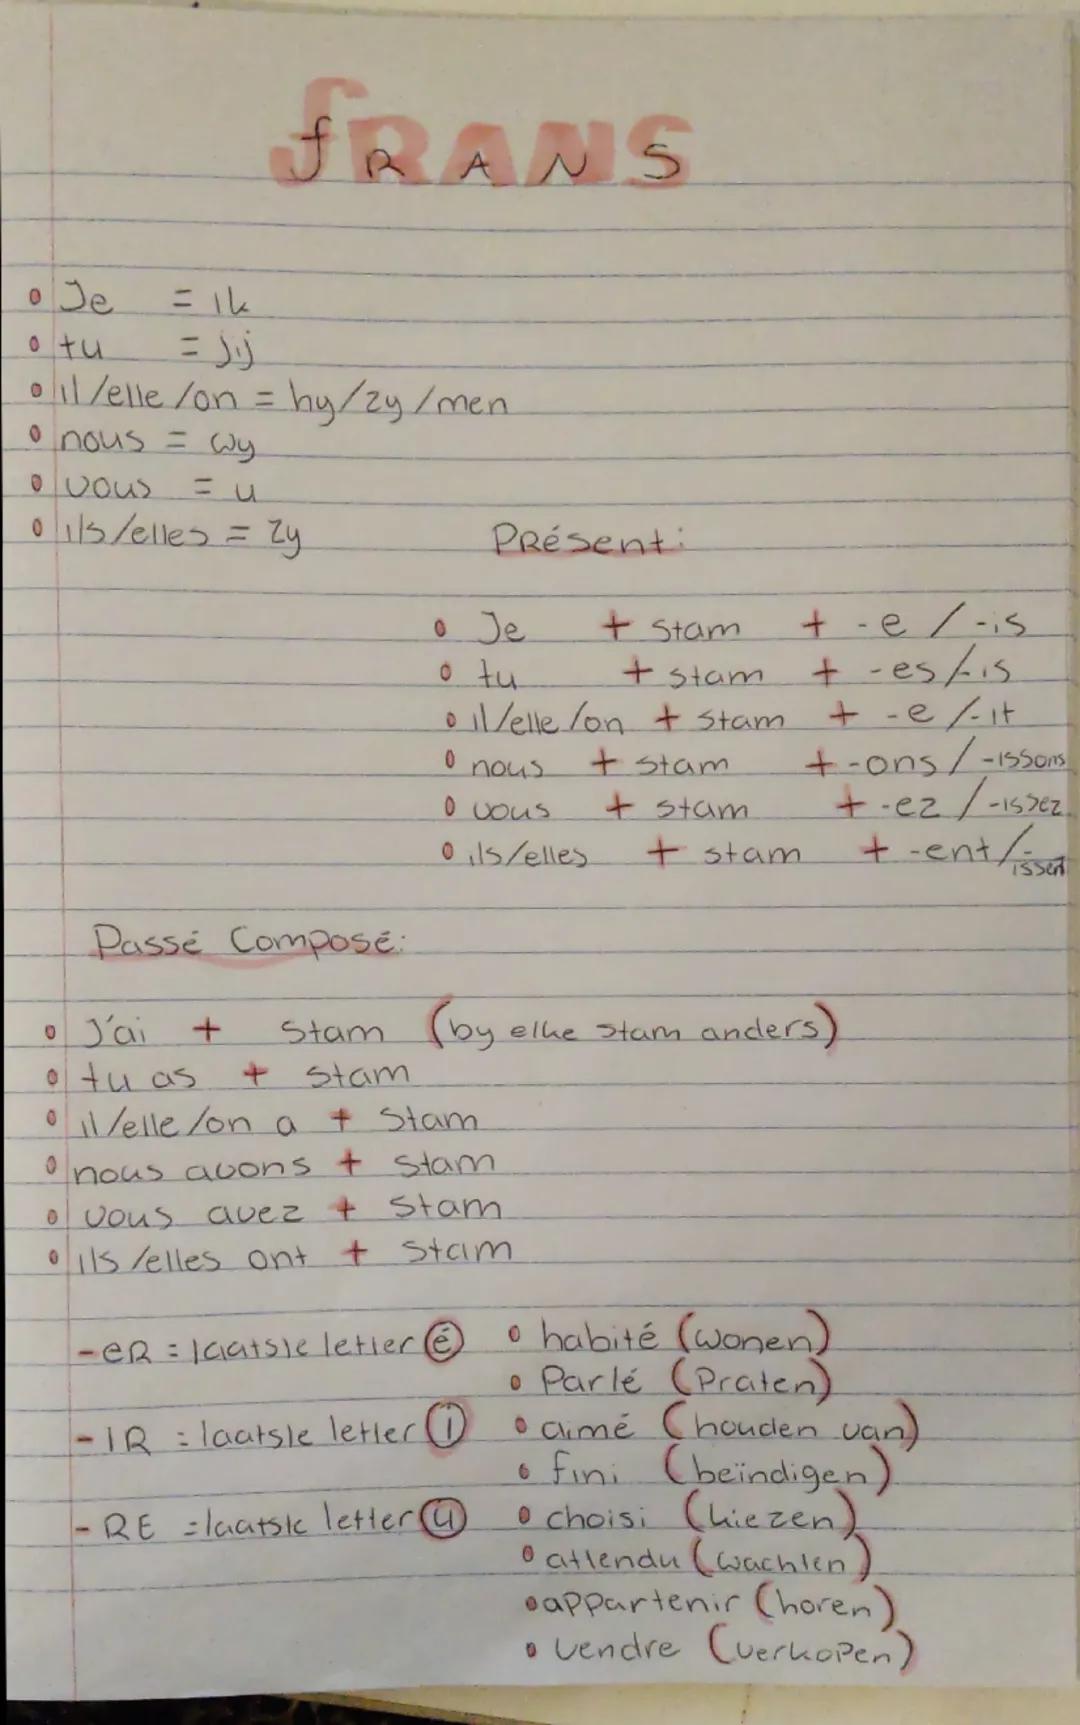 fRANS
Je = ik
tu = jij
il/elle/on = hy/zy/men
nous = wy
vous = u
ils/elles = zy
Présent:
Je + stam + -e / -is
tu + stam + -es/-is
il/elle/on + stam + -e /-it
nous + stam + -ons / -issons
vous + stam + -ez / -issez
ils/elles + stam + -ent/-issent
Passé Composé:
J'ai + stam (by elke stam anders)
tu as + stam
il/elle/on a + stam
nous avons + stam
vous avez + stam
ils/elles ont + stam
-eR = laatste letter é
-IR = laatste letter i
-RE = laatste letter u
habité (wonen)
Parlé (Praten)
aimé (houden van)
fini (beïndigen)
choisi (kiezen)
attendu (wachten)
appartenir (horen)
vendre (verkopen)